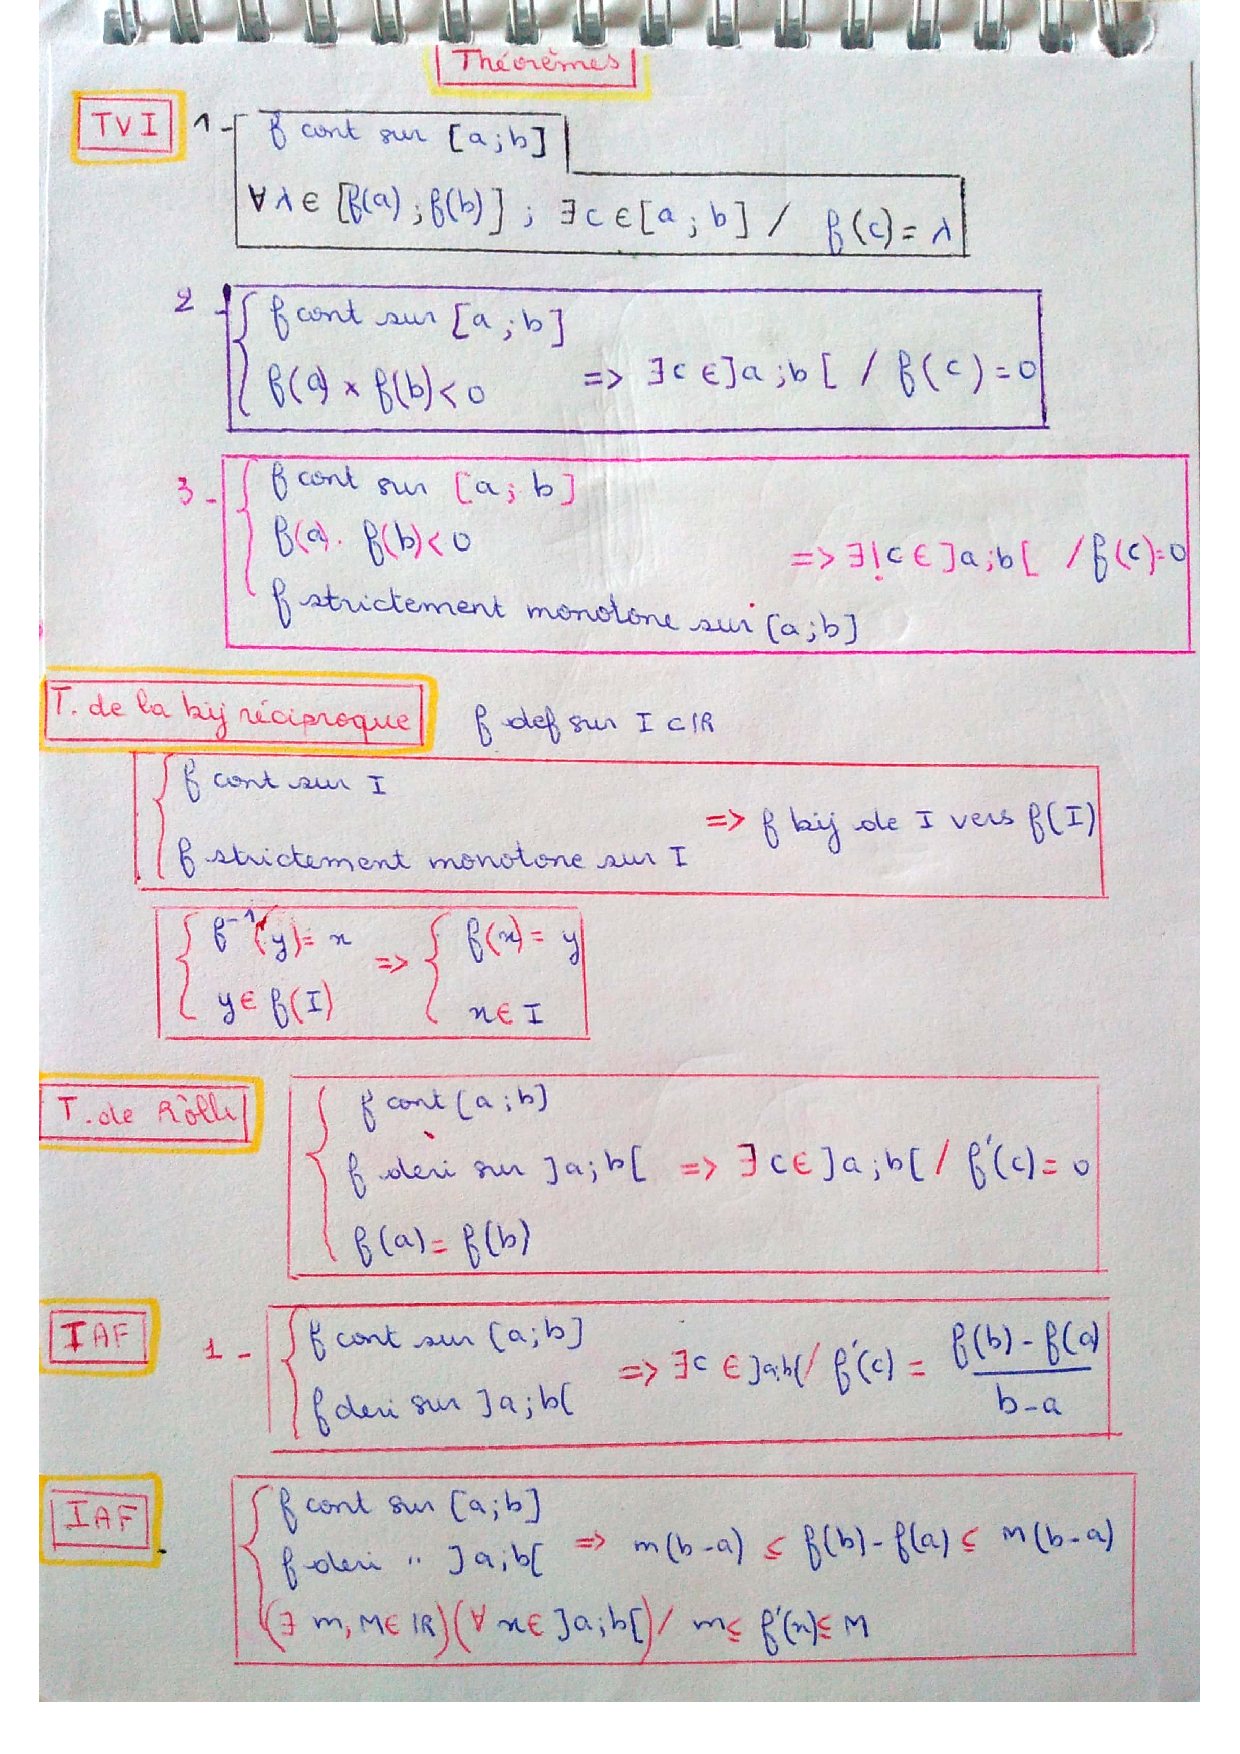 Théorèmes
TVI 1- f cont sur [a;b]
∀λ∈ [f(a);f(b)]; ∃c∈[a;b] / f(c)=λ
2- f cont sur [a;b]
f(a) × f(b)<0 => ∃c∈]a;b[ / f(c)=0
3- f cont sur [a;b]
f(a). f(b)<0 => ∃!c∈]a;b[ /f(c)=0
f strictement monotone sur [a;b]
T. de la bij réciproque f def sur I⊂IR
f cont sur I
=> f bij de I vers f(I)
f strictement monotone sur I
f⁻¹(y)= x => f(x)= y
y∈ f(I) x∈I
T. de Rôlle f cont [a;b]
f deri sur ]a;b[ => ∃c∈]a;b[ / f'(c)=0
f(a)= f(b)
IAF 1- f cont sur [a;b] => ∃c∈]a;b[ / f'(c) = f(b)-f(a) / b-a
f deri sur ]a;b[
IAF f cont sur [a;b]
f deri " ]a;b[ => m(b-a) ≤ f(b)-f(a) ≤ M(b-a)
(∃ m,M∈IR)(∀x∈]a;b[)/ m≤ f'(x)≤M